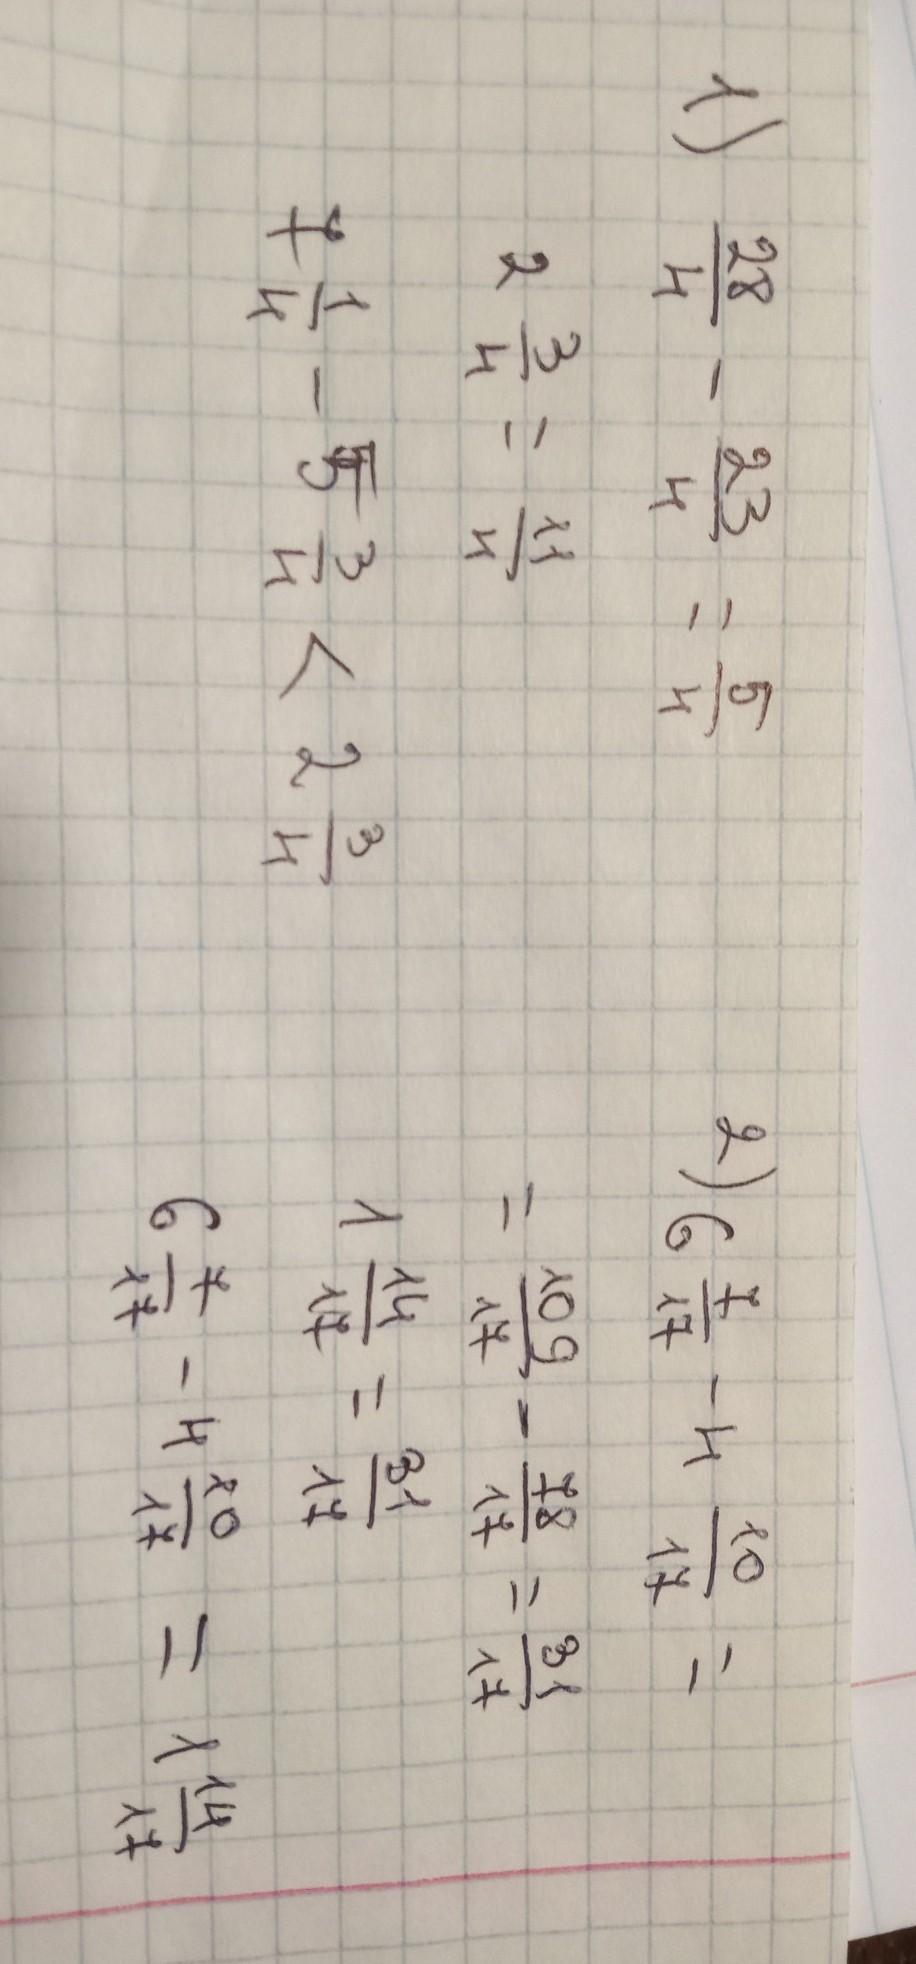 1) 28/4 - 23/4 = 5/4
2 3/4 = 11/4
7 1/4 - 5 3/4 < 2 3/4
2) 6 7/17 - 4 10/17 =
= 109/17 - 78/17 = 31/17
1 14/17 = 31/17
6 7/17 - 4 10/17 = 1 14/17